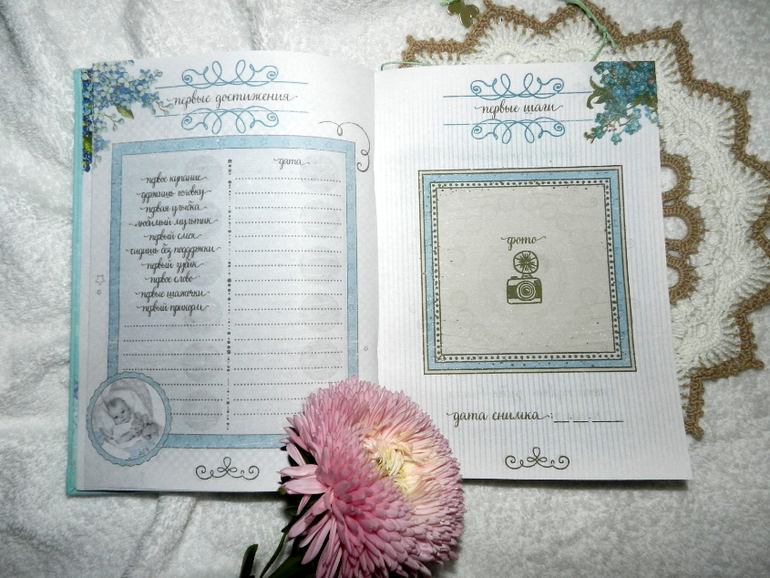 первые достижения
дата
первое купание
держишь головку
первая улыбка
любимый мультик
первый смех
сидишь без поддержки
первый зубик
первое слово
первые шажочки
первый прикорм
первые шаги
фото
дата снимка: